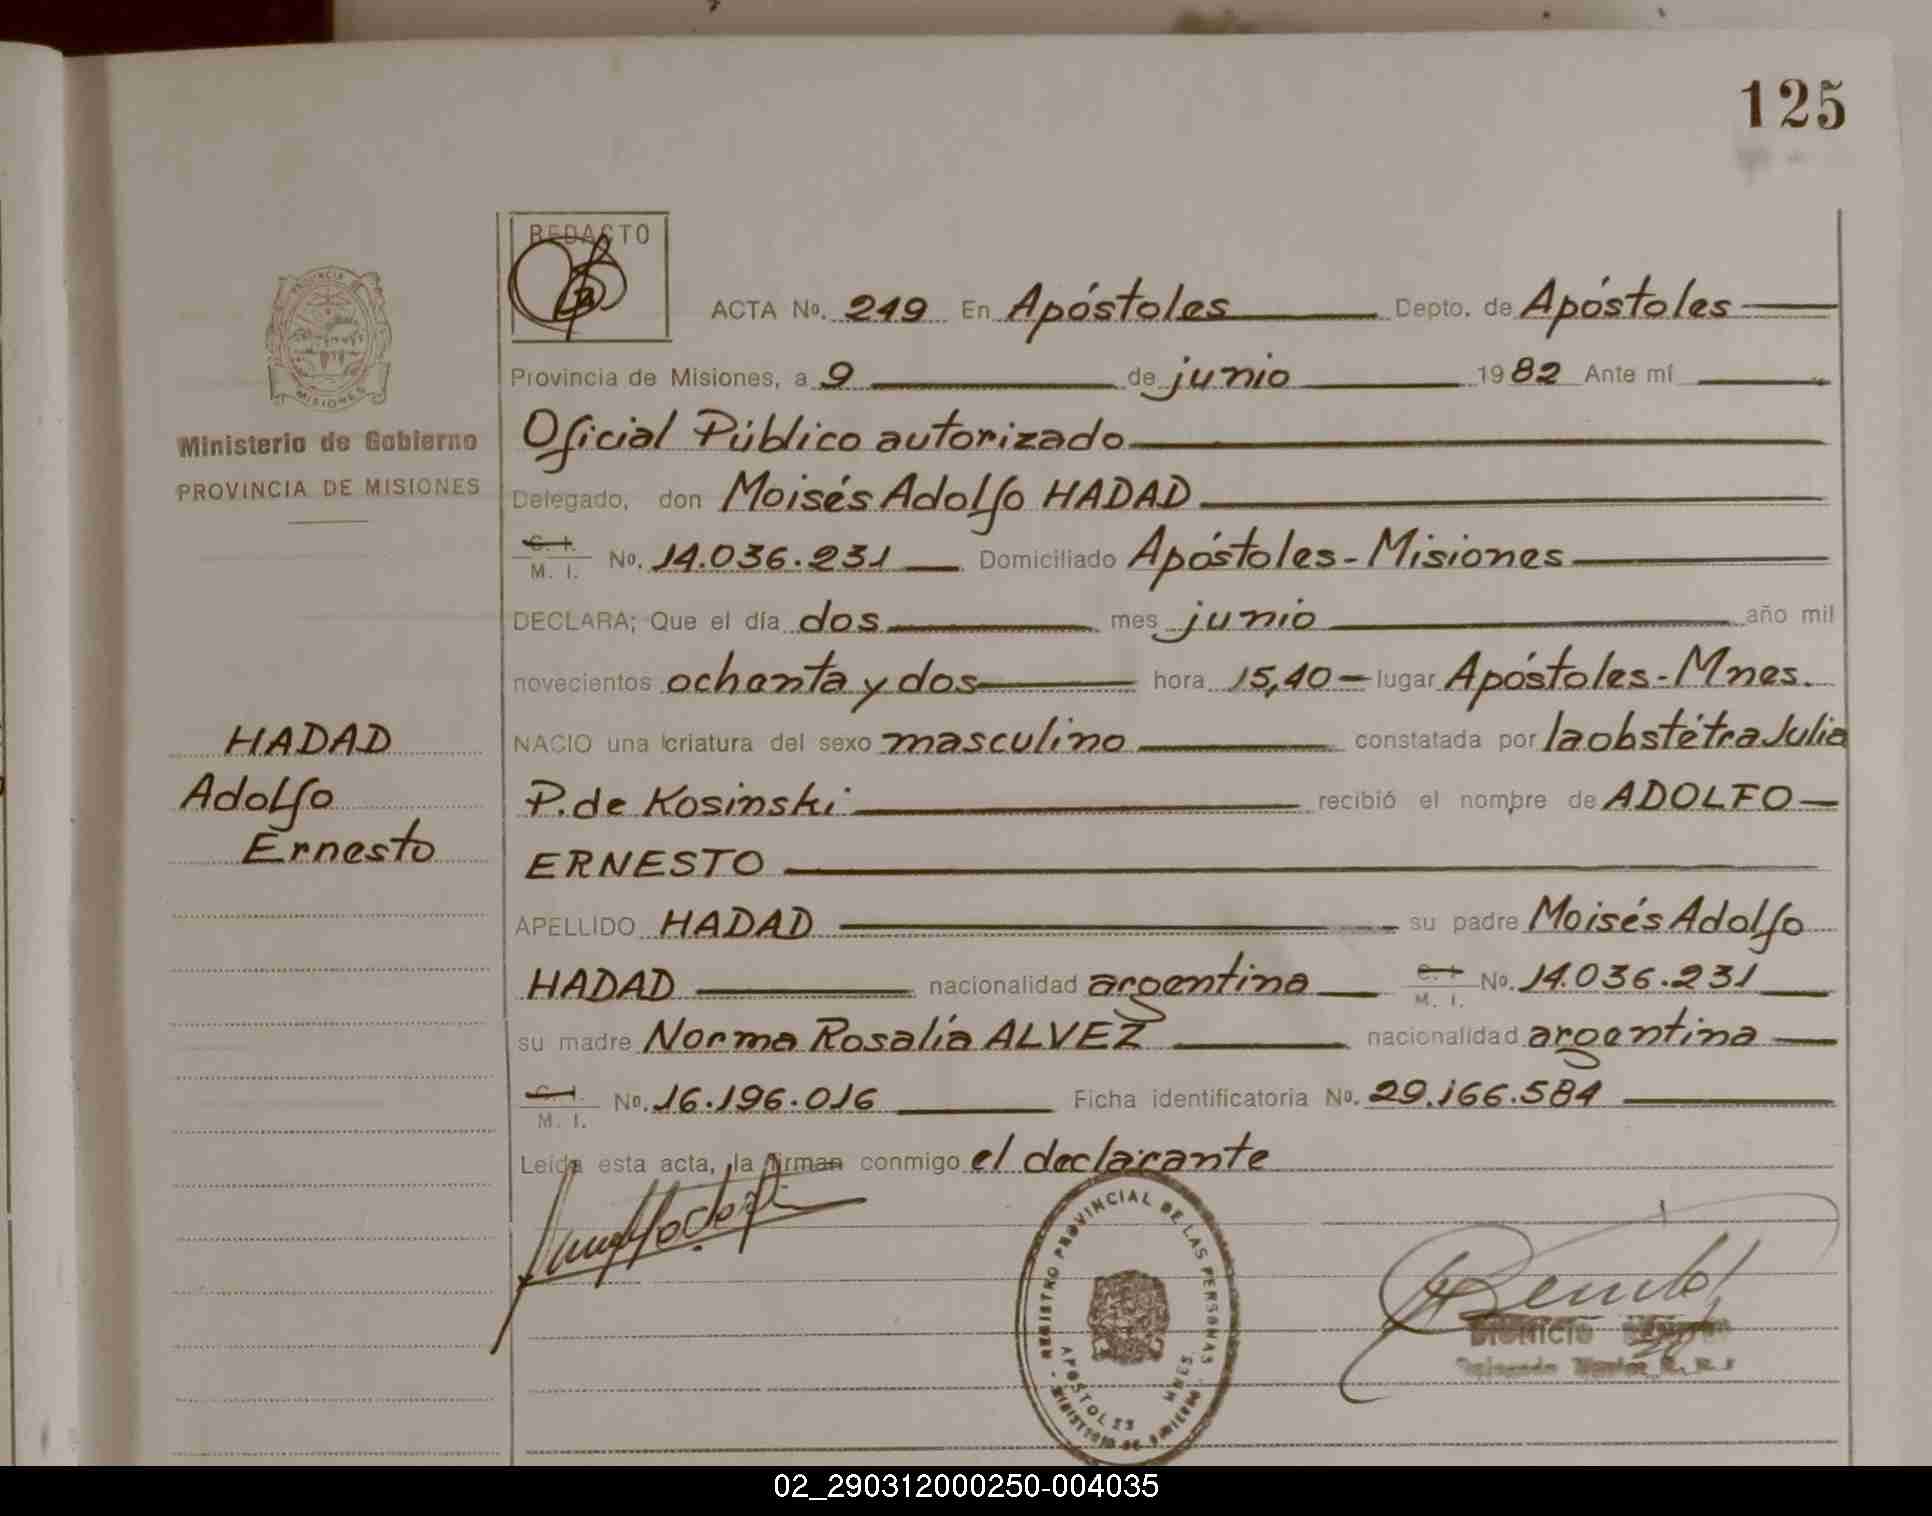 125
REDACTO
ACTA No. 249 En Apóstoles Depto. de Apóstoles
Provincia de Misiones, a 9 de junio 1982 Ante mí
Oficial Público autorizado
Delegado, don Moisés Adolfo HADAD
C. I. M. I. No. 14.036.231 Domiciliado Apóstoles-Misiones
DECLARA; Que el día dos mes junio año mil
novecientos ochenta y dos hora 15,40 lugar Apóstoles-Mnes.
NACIO una criatura del sexo masculino constatada por la obstétra Julia
P. de Kosinski recibió el nombre de ADOLFO
ERNESTO
APELLIDO HADAD su padre Moisés Adolfo
HADAD nacionalidad argentina C. I. M. I. No. 14.036.231
su madre Norma Rosalía ALVEZ nacionalidad argentina
C. I. M. I. No. 16.196.016 Ficha identificatoria No. 29.166.584
Leída esta acta, la firman conmigo el declarante
PROVINCIA
MISIONES
Ministerio de Gobierno
PROVINCIA DE MISIONES
HADAD
Adolfo
Ernesto
REGISTRO PROVINCIAL DE LAS PERSONAS
APOSTOLES MNES.
MINISTERIO DE GOBIERNO
DIONICIO
02_290312000250-004035